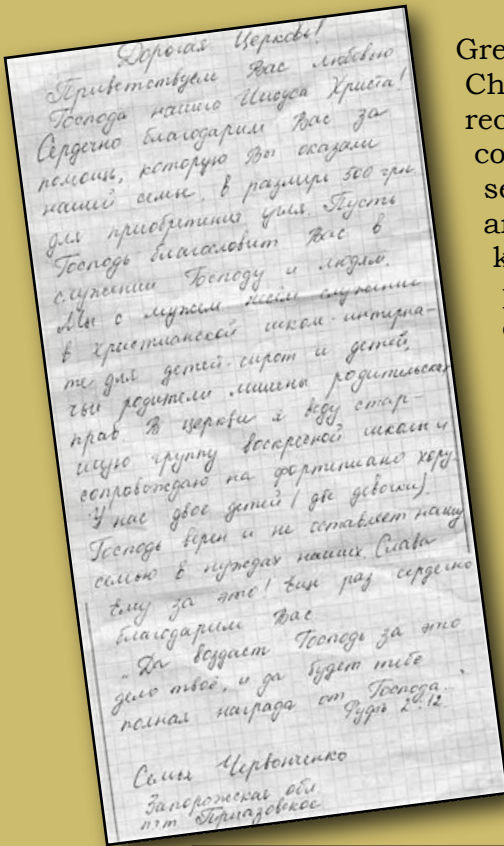 Дорогая Церковь!
Приветствуем Вас любовью
Господа нашего Иисуса Христа!
Сердечно благодарим Вас за
помощь, которую Вы оказали
нашей семье, в размере 500 грн.
для приобретения угля. Пусть
Господь благословит Вас в
служении Господу и людям.
Мы с мужем несём служение
в христианской школе-интерна-
те для детей-сирот и детей,
чьи родители лишены родительских
прав. В церкви я веду стар-
шую группу воскресной школы и
сопровождаю на фортепиано хору.
У нас двое детей (две девочки).
Господь верен и не оставляет нашу
семью в нуждах наших. Слава
Ему за это! Еще раз сердечно
благодарим Вас
"Да воздаст Господь за это
дело твоё, и да будет тебе
полная награда от Господа..."
Руфь 2:12.
Семья Червонченко
Запорожская обл.
пгт. Приазовское
Gre
Ch
rec
co
se
ar
k